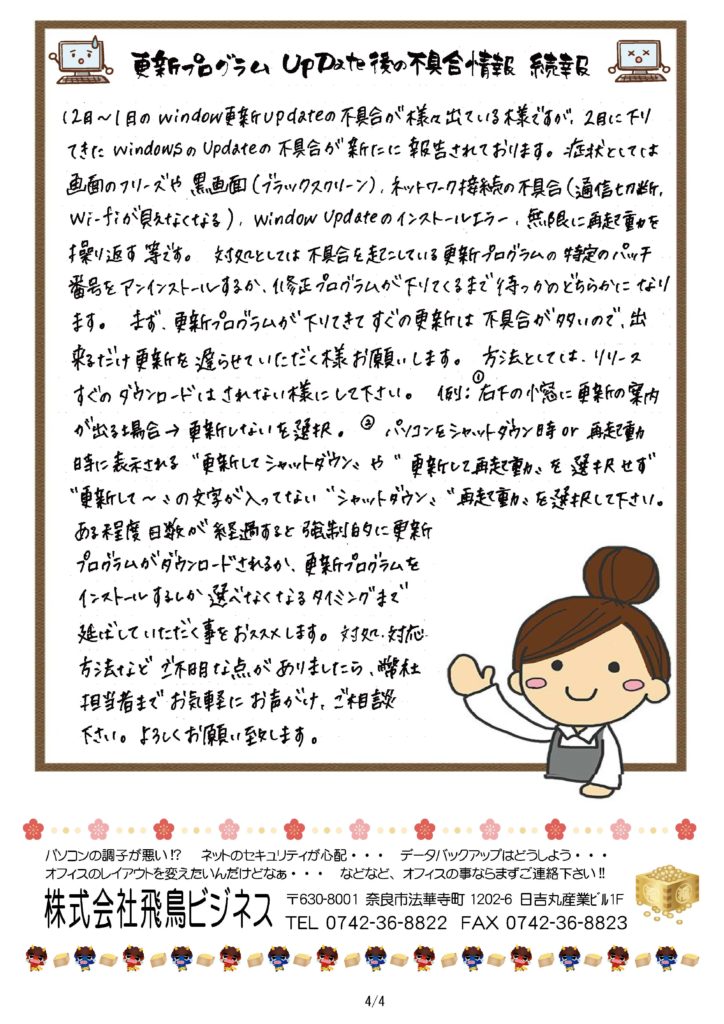 更新プログラム UpDate後の不具合情報 続報
12月～1月のwindow更新updateの不具合が様々出ている様ですが、2月に下り
てきたwindowsのupdateの不具合が新たに報告されております。症状としては
画面のフリーズや黒画面(ブラックスクリーン)、ネットワーク接続の不具合(通信切断、
Wi-fiが見えなくなる)、window updateのインストールエラー、無限に再起動を
操り返す等です。 対処としては不具合を起こしている更新プログラムの特定のパッチ
番号をアンインストールするか、修正プログラムが下りてくるまで待つかのどちらかになり
ます。 まず、更新プログラムが下りてきてすぐの更新は不具合が多いので、出
来るだけ更新を遅らせていただく様お願いします。 方法としては、リリース
すぐのダウンロードはされない様にして下さい。 例:①右下の小窓に更新の案内
が出る場合→更新しないを選択。 ②パソコンをシャットダウン時or再起動
時に表示される“更新してシャットダウン〟や“更新して再起動〟を選択せず
“更新して～〟の文字が入ってない“シャットダウン〟“再起動〟を選択して下さい。
ある程度日数が経過すると強制的に更新
プログラムがダウンロードされるか、更新プログラムを
インストールするしか選べなくなるタイミングまで
延ばしていただく事をおススメします。対処、対応
方法などご不明な点がありましたら、弊社
担当者までお気軽にお声がけ、ご相談
下さい。よろしくお願い致します。
パソコンの調子が悪い!? ネットのセキュリティが心配・・・ データバックアップはどうしよう・・・
オフィスのレイアウトを変えたいんだけどなぁ・・・ などなど、オフィスの事ならまずご連絡下さい!!
株式会社飛鳥ビジネス 〒630-8001 奈良市法華寺町 1202-6 日吉丸産業ビル1F
TEL 0742-36-8822 FAX 0742-36-8823
4/4